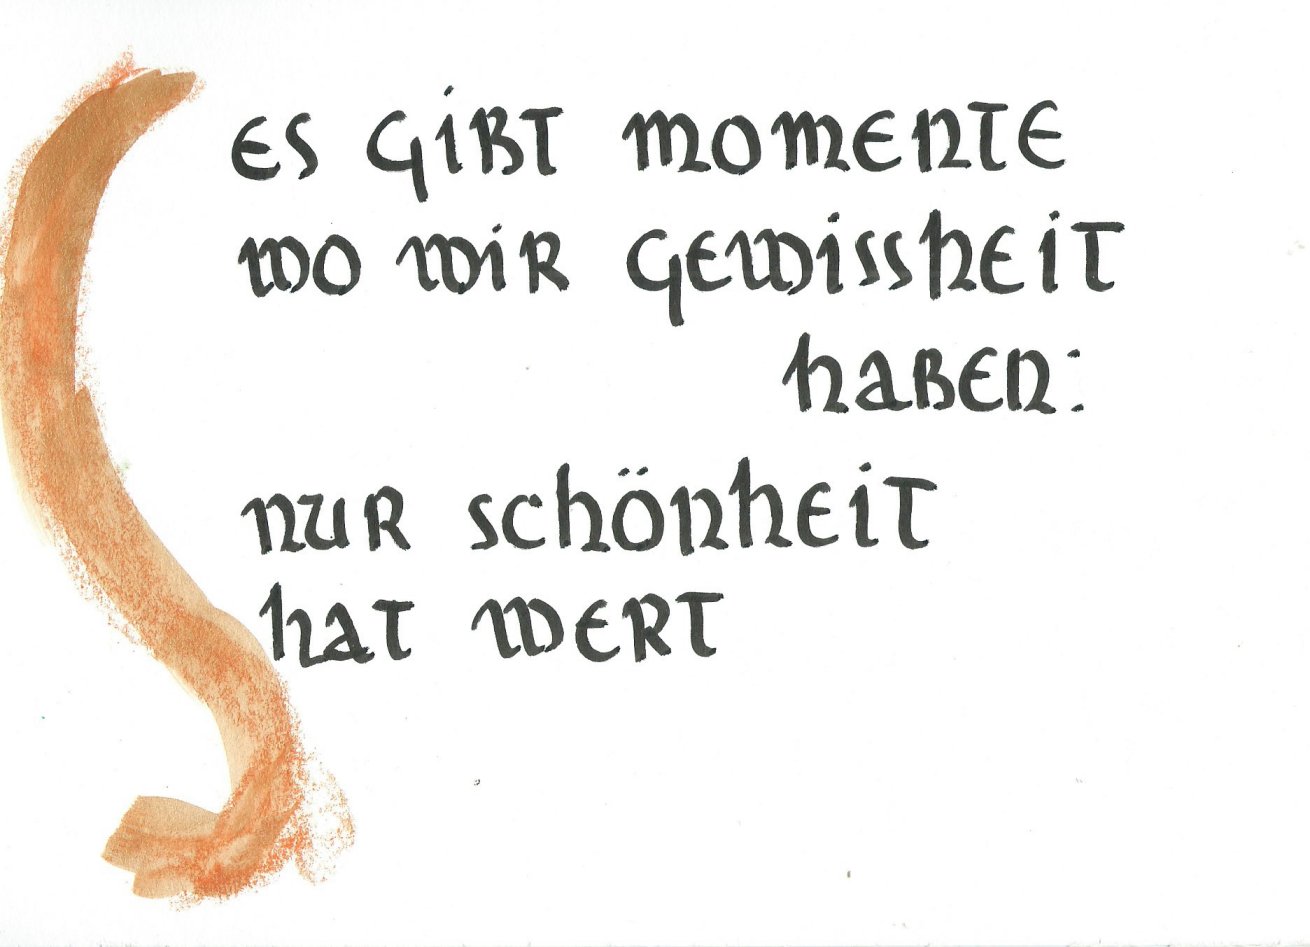 Es gibt Momente
wo wir Gewissheit
haben:
nur Schönheit
hat Wert